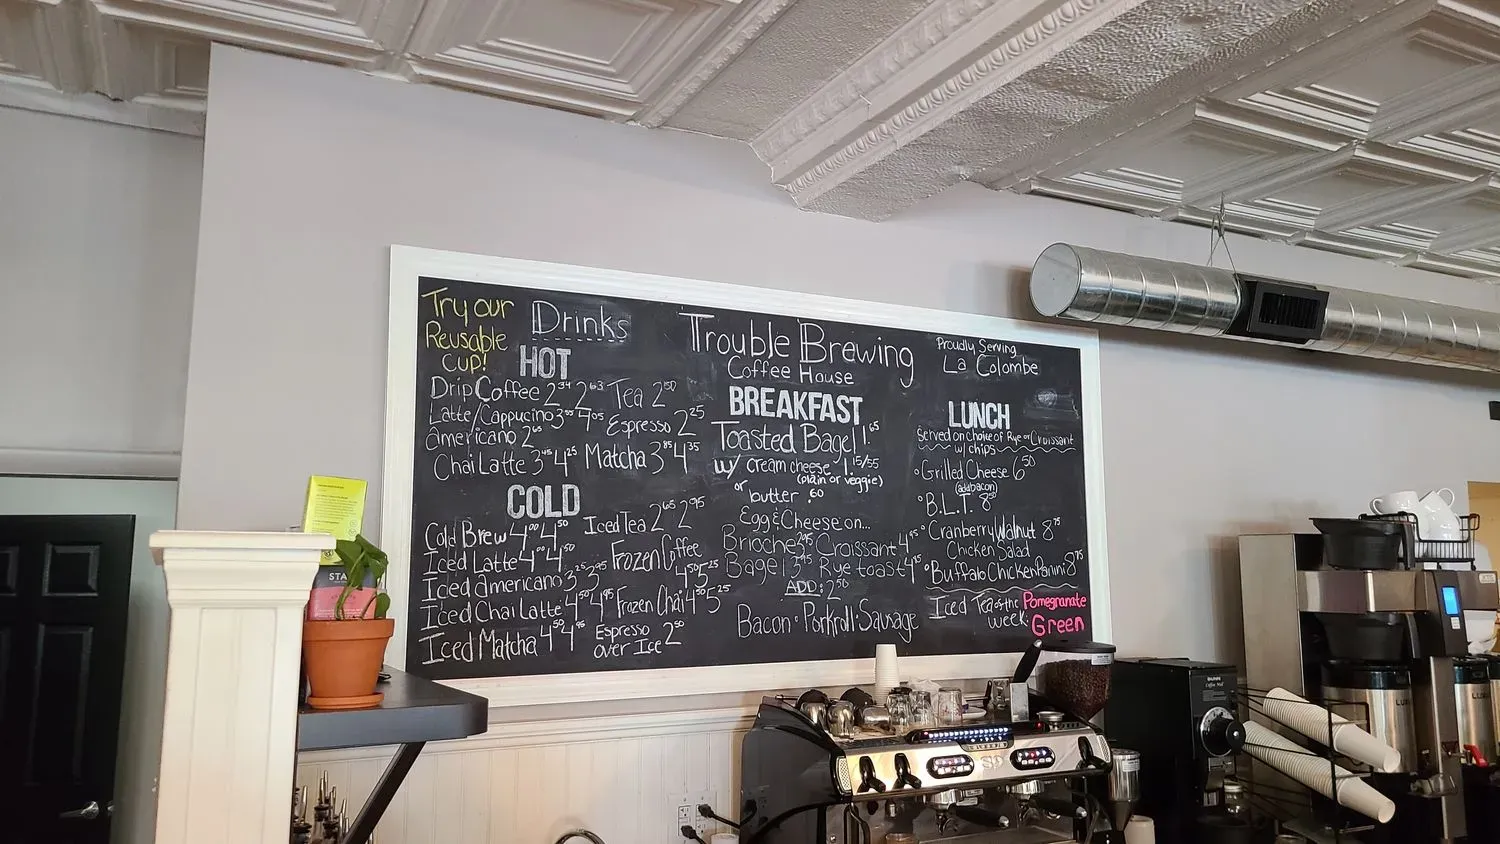 Try our
Reusable
Cup!
Drinks
HOT
Drip Coffee 2.34 2.63 Tea 2.50
Latte/Cappucino 4.05 Espresso 2.25
americano 2
Chai Latte 3 4.25 Matcha 3.85 4.35
COLD
Cold Brew 4.00 4.50 Iced Tea 2.65 2.95
Iced Latte 4.00 4.50 Frozen Coffee
Iced americano 3.25 3.95 4.50 5.25
Iced Chai Latte 4.50 4.95 Frozen Chai 4.50 5.25
Iced Matcha 4.50 4.95 Espresso
over Ice 2.50
Trouble Brewing
Coffee House
BREAKFAST
Toasted Bagel 1.65
w/ cream cheese 1.15/55
(plain or veggie)
or butter .60
Egg & Cheese on...
Brioche Croissant 4.95
Bagel 3.95 Rye toast 4.95
ADD: 2.50
Bacon • Porkroll • Sausage
Proudly Serving
La Colombe
LUNCH
Served on choice of Rye or Croissant
w/ chips
• Grilled Cheese 6.50
(add bacon)
• B.L.T. 8
• Cranberry Walnut 8.75
Chicken Salad
• Buffalo Chicken Panini 8.75
Iced Tea of the Pomegranate
week: Green
STA
BUNN
Coffee Mill